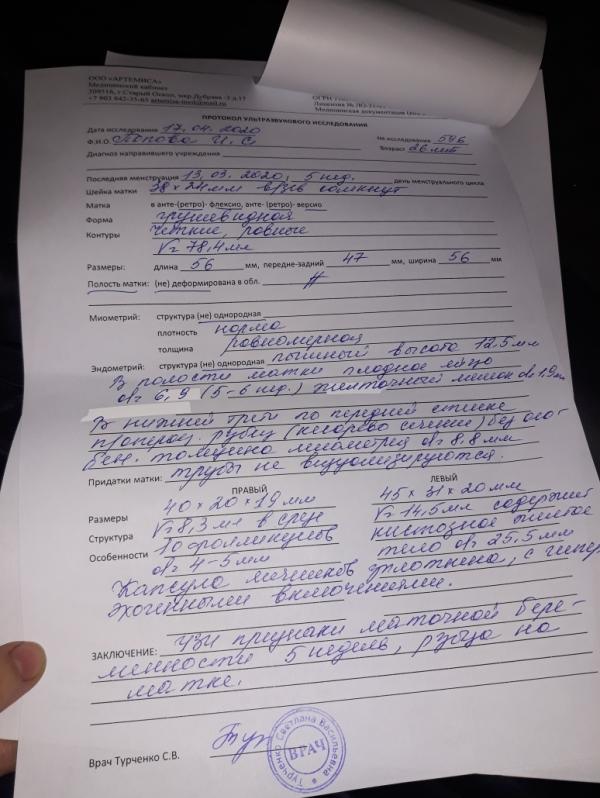 ООО «АРТЕМИСА»
Медицинский кабинет
309516, г Старый Оскол, мкр.Дубрава -3 д.17
+7 903 642-35-65
ОГРН
Лицензия № ЛО-31
Медицинская документация
ПРОТОКОЛ УЛЬТРАЗВУКОВОГО ИССЛЕДОВАНИЯ
Дата исследования 17.04.2020 № исследования 546
Ф.И.О. Попова И.С. Возраст 26 лет
Диагноз направившего учреждения
Последняя менструация 13.03.2020, 5 нед. день менструального цикла
Шейка матки 38×24мм в/зев сомкнут
Матка в анте-(ретро)- флексио, анте- (ретро)- версио
Форма грушевидной
Контуры четкие, ровные
V= 78,4мл
Размеры: длина 56 мм, передне-задний 47 мм, ширина 56 мм
Полость матки: (не) деформирована в обл.
Миометрий: структура (не) однородная
плотность норма
толщина равномерная
Эндометрий: структура (не) однородная пышный высота 12,5мм
В полости матки плодное яйцо
d= 6,9 (5-6 нед.) желточный мешок d= 1,9мм
В нижней трети по передней стенке
п/операц. рубец (кесарево сечение) без осо-
бен. толщина миометрия d= 8,8мм
Придатки матки: трубы не визуализируются.
ПРАВЫЙ ЛЕВЫЙ
Размеры 40×20×19мм 45×31×20мм
Структура V= 8,3мл в срезе V= 14,5мл содержит
10 фолликулов кистозное желтое
Особенности d= 4-5мм тело d= 25,5мм
Капсула яичников уплотнена, с гипер
эхогенными включениями.
ЗАКЛЮЧЕНИЕ: УЗИ признаки маточной бере-
менности 5 недель, рубца на
матке.
Врач Турченко С.В.
Турченко Светлана Васильевна
ВРАЧ